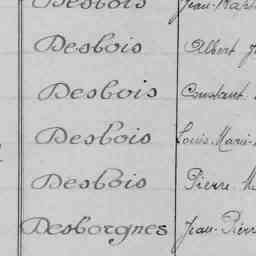 Desbois Jean-Bapt
Desbois Albert J
Desbois Constant
Desbois Louis Marie
Desbois Pierre M
Desborgnes Jean-Pierr